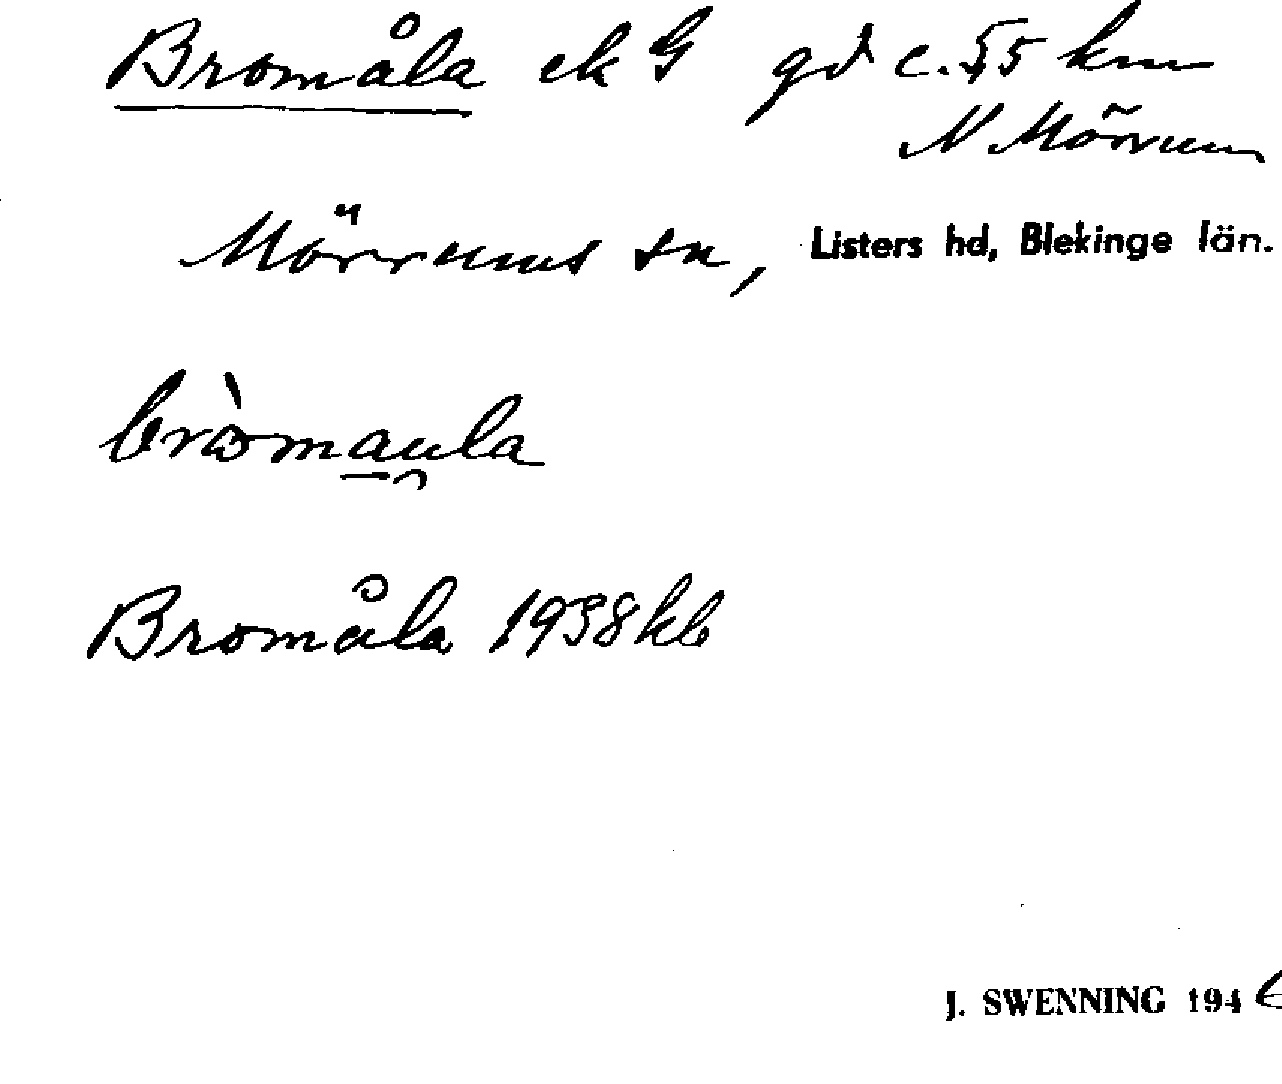 Bromåla ek G gd c. 5,5 km
N Mörrum
Mörrums sn, Listers hd, Blekinge län.
bròmau̯la
Bromåla 1938 kb
J. SWENNING 1946